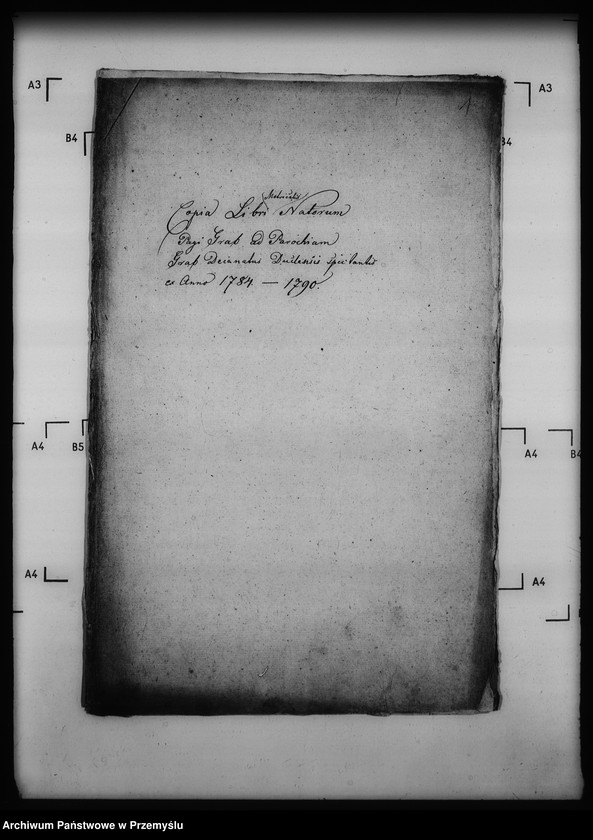 A3
A3
B4
B4
1
Metricalis
Copia Libri Natorum
Pagi Grab ad Parochiam
Grab Decanatus Duclensis spectantis
ex Anno 1784 — 1790.
A4
B5
A4
B4
A4
A4
Archiwum Państwowe w Przemyślu